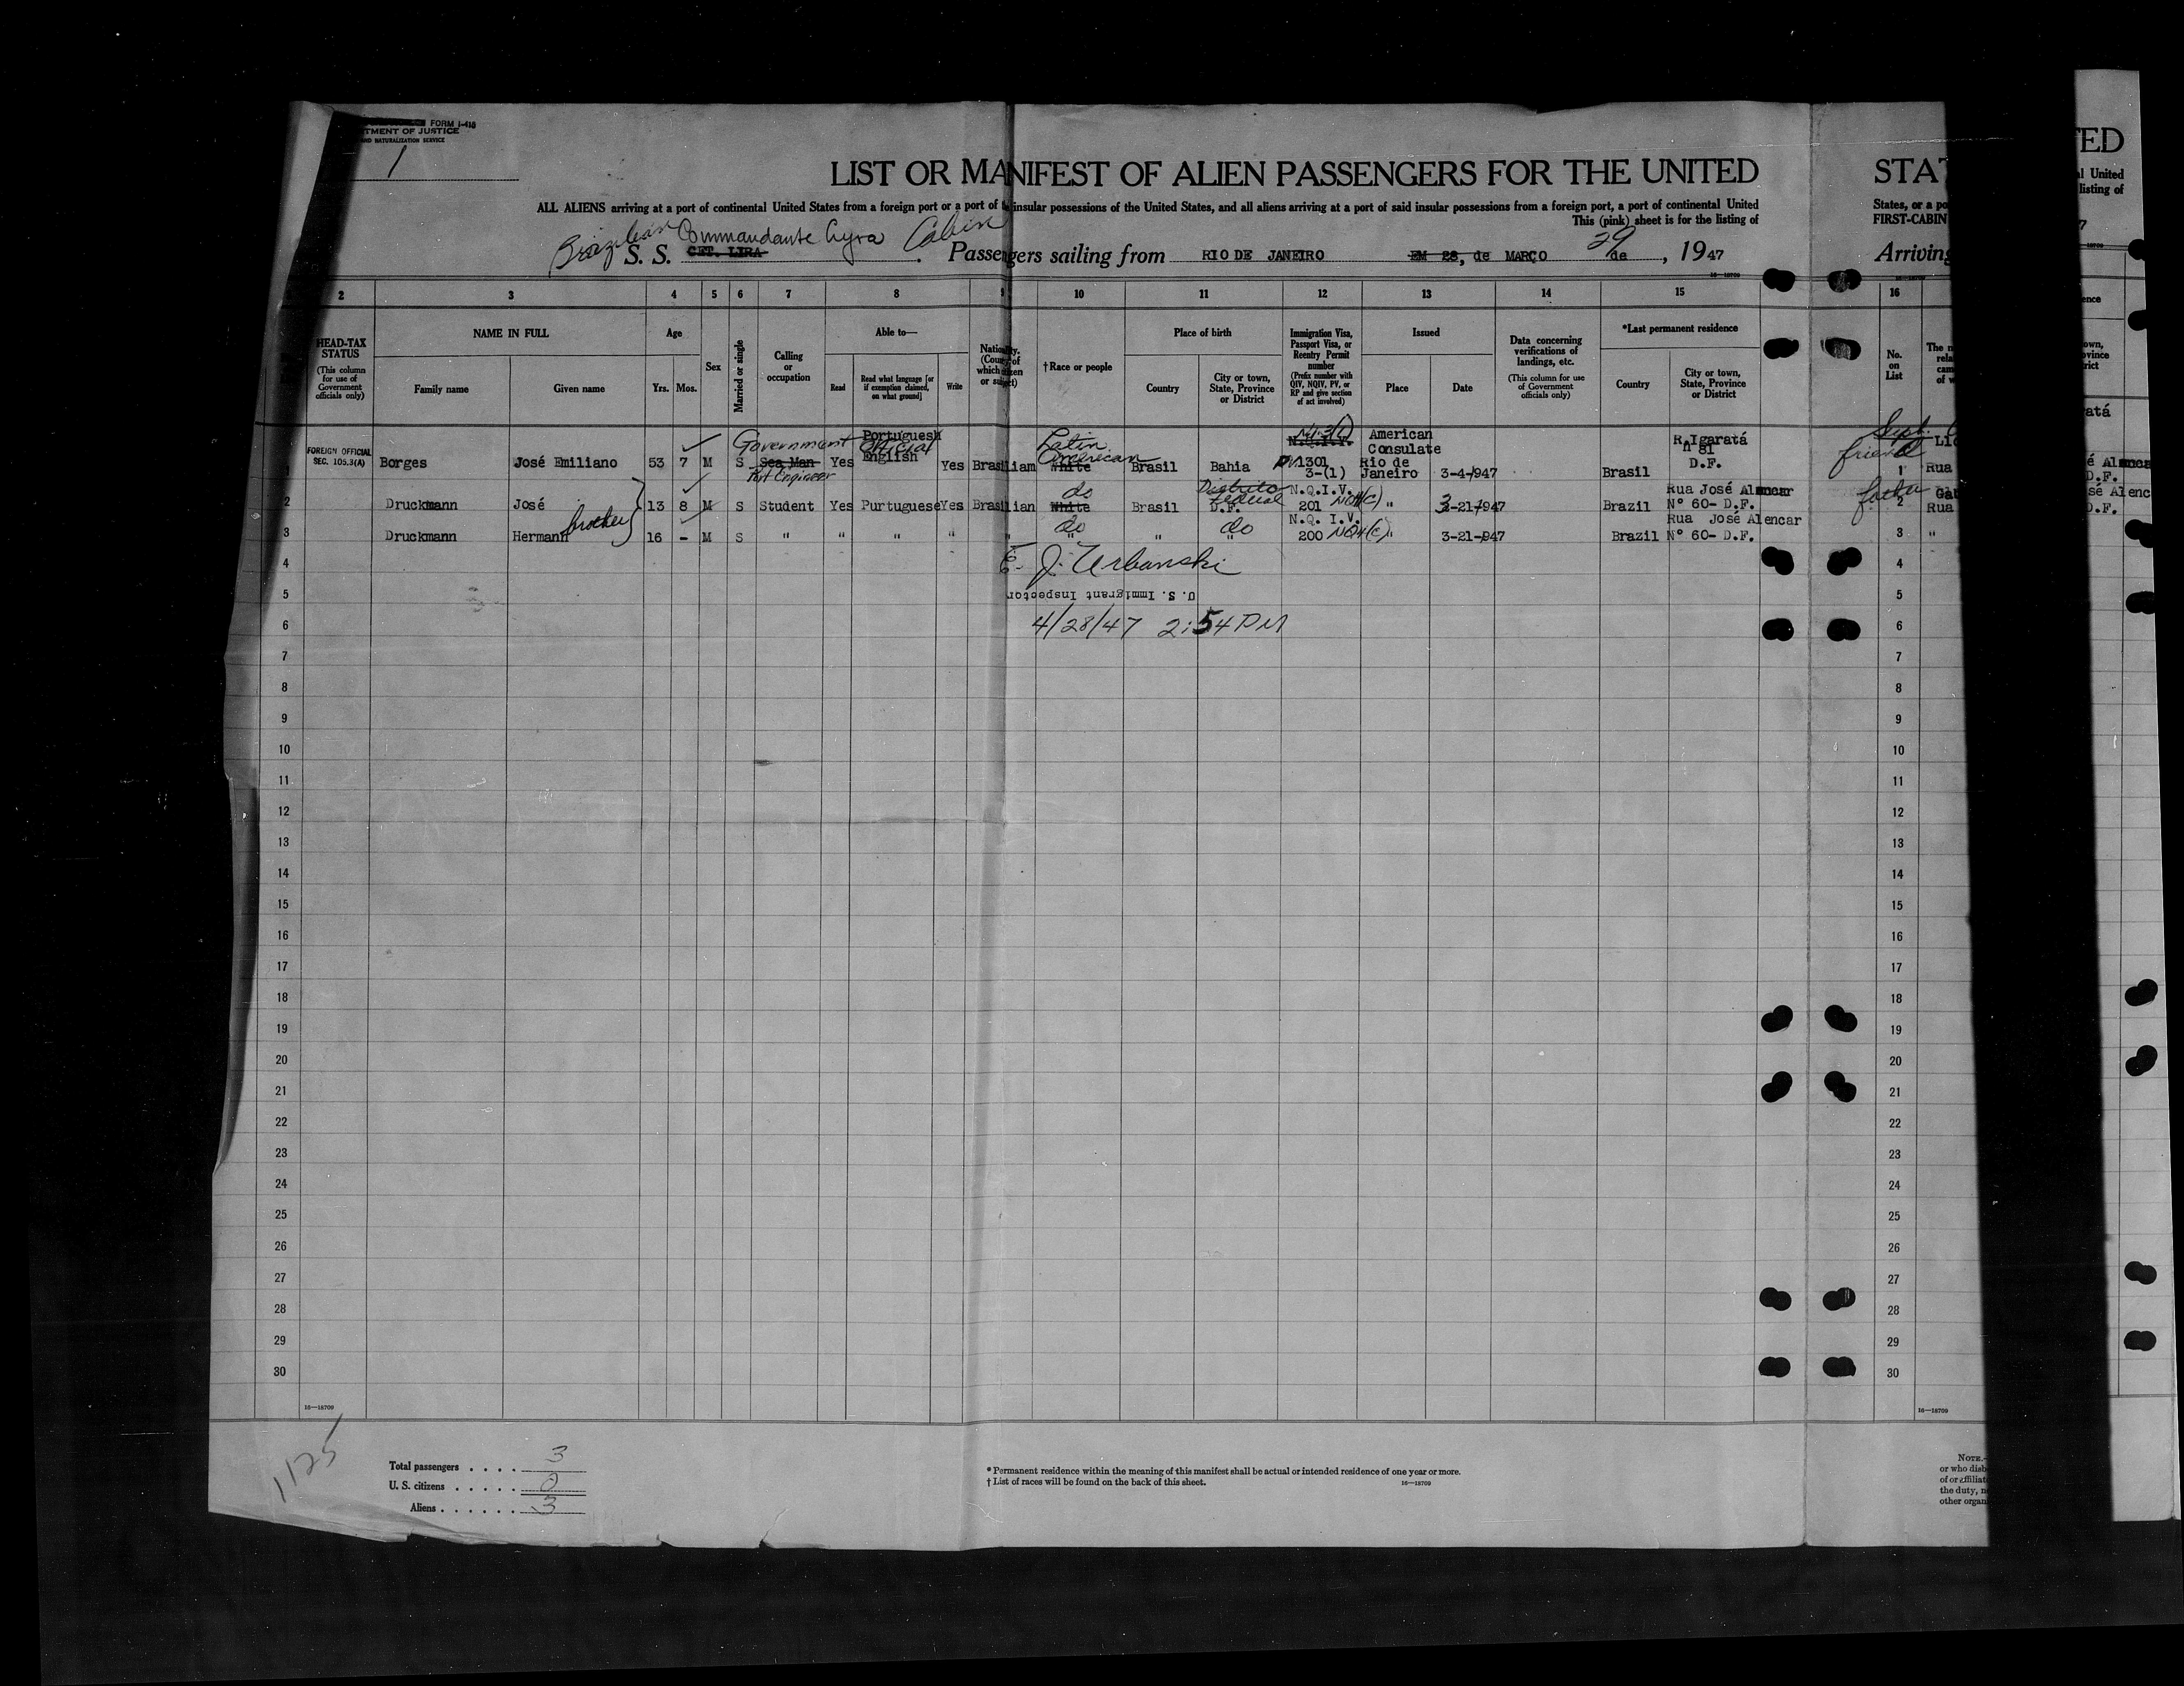 FORM I-418
TMENT OF JUSTICE
AND NATURALIZATION SERVICE
1
LIST OR MANIFEST OF ALIEN PASSENGERS FOR THE UNITED
STAT
ALL ALIENS arriving at a port of continental United States from a foreign port or a port of the insular possessions of the United States, and all aliens arriving at a port of said insular possessions from a foreign port, a port of continental United
States, or a po
This (pink) sheet is for the listing of
FIRST-CABIN
Brazilian Commandante Lyra Cabin
S. S. CMT. LIRA Passengers sailing from RIO DE JANEIRO EM 28, de MARÇO 29 de , 1947
Arriving
16—18709
2 3 4 5 6 7 8 9 10 11 12 13 14 15 16
HEAD-TAX STATUS
(This column for use of Government officials only)
NAME IN FULL
Family name Given name
Age
Yrs. Mos.
Sex
Married or single
Calling or occupation
Able to—
Read
Read what language [or if exemption claimed, on what ground]
Write
Nationality. (Country of which citizen or subject)
†Race or people
Place of birth
Country
City or town, State, Province or District
Immigration Visa, Passport Visa, or Reentry Permit number
(Prefix number with QIV, NQIV, PV, or RP and give section of act involved)
Issued
Place Date
Data concerning verifications of landings, etc.
(This column for use of Government officials only)
*Last permanent residence
Country
City or town, State, Province or District
No. on List
FOREIGN OFFICIAL
SEC. 105.3(A)
1 Borges José Emiliano 53 7 M S Government Official Sea Man Port Engineer Yes Portuguesh English Yes Brasiliam Latin American White Brasil Bahia N.Q.I.V. PV 1301 3-(1) American Consulate Rio de Janeiro 3-4-947 Brasil R.Igaratá n 81 D.F. friend 1 Rua
2 Druckmann José 13 8 M S Student Yes Purtuguese Yes Brasilian do White Brasil Distrito Federal D.F. N.Q.I.V. 201 " 3-21-947 Brazil Rua José Alencar Nº 60- D.F. father 2 Rua
brother
3 Druckmann Hermann 16 - M S " " " " " do " " do " N.Q. I.V. 200 " 3-21-947 Brazil Rua José Alencar Nº 60- D.F. 3 "
4 E. J. Urbanski 4
5 U. S. Immigrant Inspector 5
6 4/28/47 2:54 PM 6
7 7
8 8
9 9
10 10
11 11
12 12
13 13
14 14
15 15
16 16
17 17
18 18
19 19
20 20
21 21
22 22
23 23
24 24
25 25
26 26
27 27
28 28
29 29
30 30
16—18709 16—18709
1125
Total passengers . . . . 3
U. S. citizens . . . . . 0
Aliens . . . . . . 3
* Permanent residence within the meaning of this manifest shall be actual or intended residence of one year or more.
† List of races will be found on the back of this sheet.
16—18709
NOTE.—
or who disb
of or affiliat
the duty, n
other organ
TED
al United
listing of